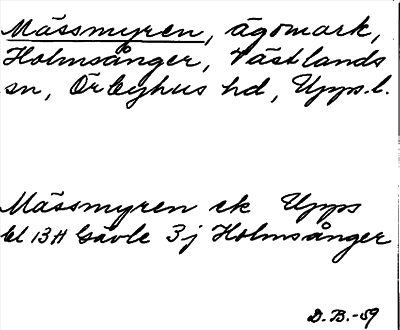 Mässmyren, ägomark,
Holmsånger, Västlands
sn, Örbyhus hd, Upps.l.
Mässmyren ek Upps
bl 13H Gävle 3j Holmsånger
D.B.-59